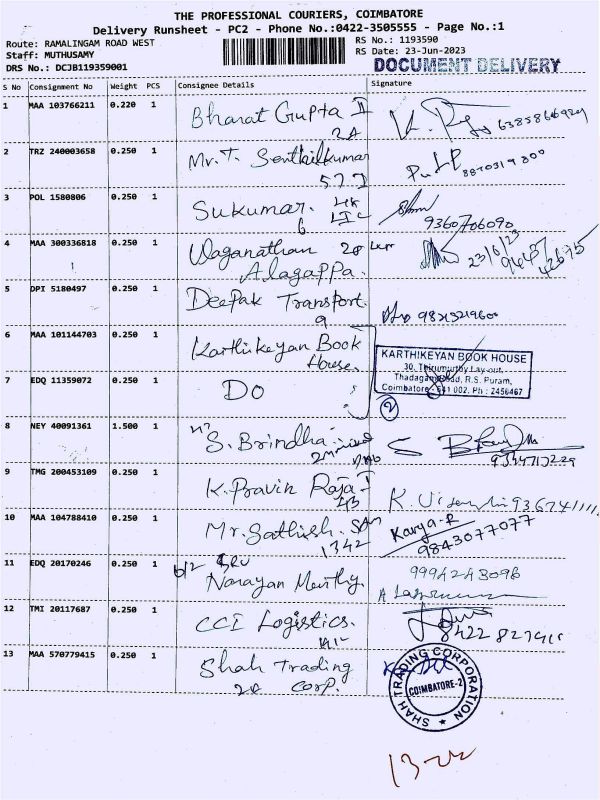 THE PROFESSIONAL COURIERS, COIMBATORE
Delivery Runsheet - PC2 - Phone No.:0422-3505555 - Page No.:1
Route: RAMALINGAM ROAD WEST
RS No.: 1193590
Staff: MUTHUSAMY
RS Date: 23-Jun-2023
DRS No.: DCJB119359001
DOCUMENT DELIVERY
S No Consignment No Weight PCS Consignee Details Signature
1 MAA 103766211 0.220 1 Bharat Gupta II
2A
2 TRZ 240003658 0.250 1 Mr. T. Senthilkumar
3 POL 1580806 0.250 1 Sukumar. LIC
6 9360706090
4 MAA 300336818 0.250 1 Waganathan 28
Alagappa. 23/6/23
5 DPI 5180497 0.250 1 Deepak Transport.
9
6 MAA 101144703 0.250 1 Karthikeyan Book
House.
KARTHIKEYAN BOOK HOUSE
30, Thirumurthy Lay-out,
Thadagam Road, R.S. Puram,
Coimbatore - 641 002. Ph : 2456467
7 EDQ 11359072 0.250 1 DO
2
8 NEY 40091361 1.500 1 S. Brindha
9 TMG 200453109 0.250 1 K. Pravin Raja I
10 MAA 104788410 0.250 1 Mr. Sathish. Karya-R
1342 9843077077
11 EDQ 20170246 0.250 1 612 SRV
Narayan Murthy. 9994243096
12 TMI 20117687 0.250 1 CCI Logistics.
13 MAA 570779415 0.250 1 Shah Trading
2A Corp.
SHAH TRADING CORPORATION
COIMBATORE-2
13-22